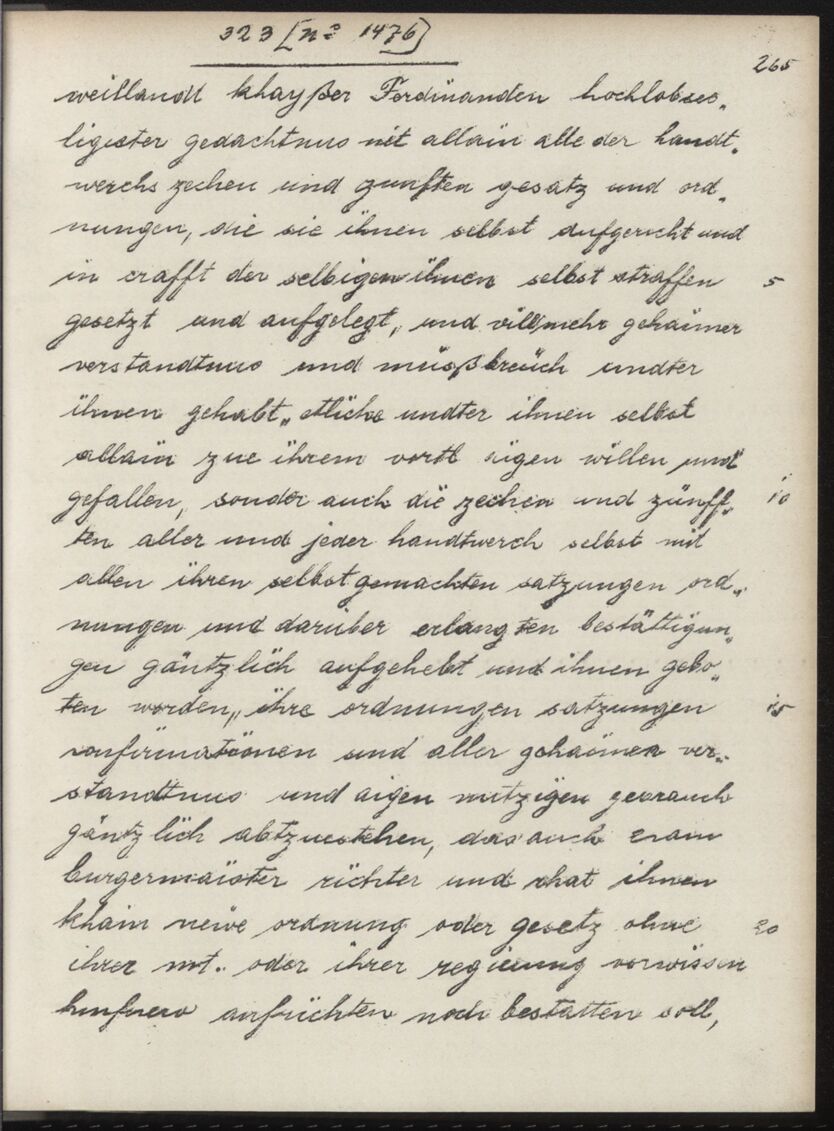 323 [nº 1476]
265
weillandt khayßer Ferdinanden hochlobsee„
ligister gedachtnus nit allain alle der handt„
werchs zechen und zunften gesatz und ord„
nungen, die sie ihnen selbst aufgericht und
in crafft der selbigen ihnen selbst straffen 5
gesetzt und aufgelegt, und villmehr gehaimer
verstandtnus und müßbreüch undter
ihnen gehabt„ etliche undter ihnen selbst
allain zue ihrem vortl aigen willen und
gefallen, sonder auch die zechen und zünff„ 10
ten aller und jeder handtwerch selbst mit
allen ihren selbstgemachten satzungen ord„
nungen und darüber erlangten bestättigun„
gen gäntzlich aufgehebt und ihnen gebo„
ten worden„ ihre ordnungen satzungen 15
confirmationen und aller gehaimen ver„
standtnus und aigen nutzigen gebrauch
gäntzlich abtzuestehen, das auch
burgermaister richter und rhat ihnen
khain newe ordnung oder gesetz ohne 20
ihrer mt. oder ihrer regierung vorwissen
hinfuero aufrichten noch bestatten soll,